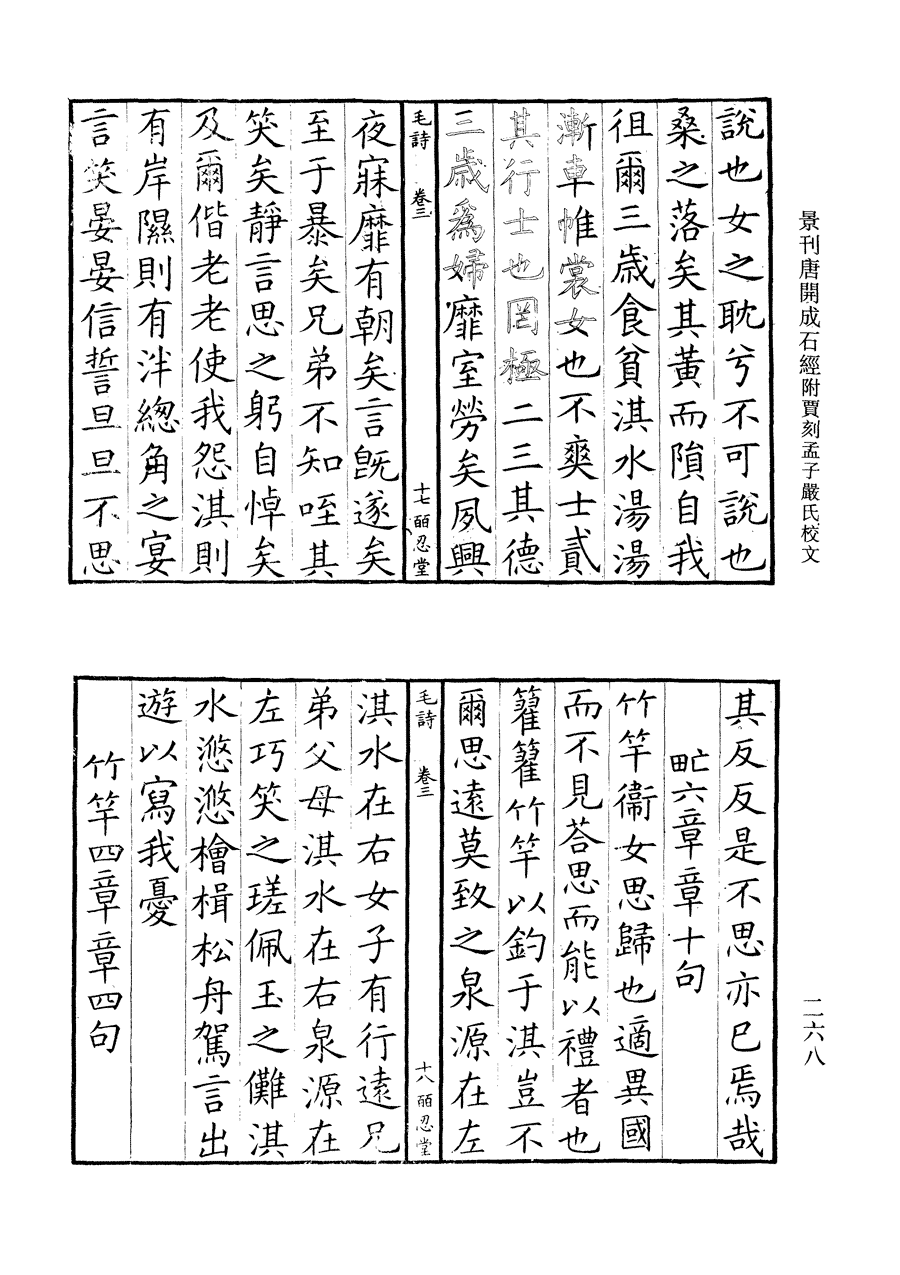 景刊唐開成石經附賈刻孟子嚴氏校文
說也女之耽兮不可說也
桑之落矣其黃而隕自我
徂爾三歲食貧淇水湯湯
漸車帷裳女也不爽士貳
其行士也罔極二三其德
三歲爲婦靡室勞矣夙興
毛詩 卷三 十七 皕忍堂
夜寐靡有朝矣言旣遂矣
至于暴矣兄弟不知咥其
笑矣靜言思之躬自悼矣
及爾偕老老使我怨淇則
有岸隰則有泮緫角之宴
言笑晏晏信誓旦旦不思
其反反是不思亦已焉哉
甿六章章十句
竹竿衞女思歸也適異國
而不見荅思而能以禮者也
籊籊竹竿以釣于淇豈不
爾思遠莫致之泉源在左
毛詩 卷三 十八 皕忍堂
淇水在右女子有行遠兄
弟父母淇水在右泉源在
左巧笑之瑳佩玉之儺淇
水滺滺檜楫松舟駕言出
遊以寫我憂
竹竿四章章四句
二六八